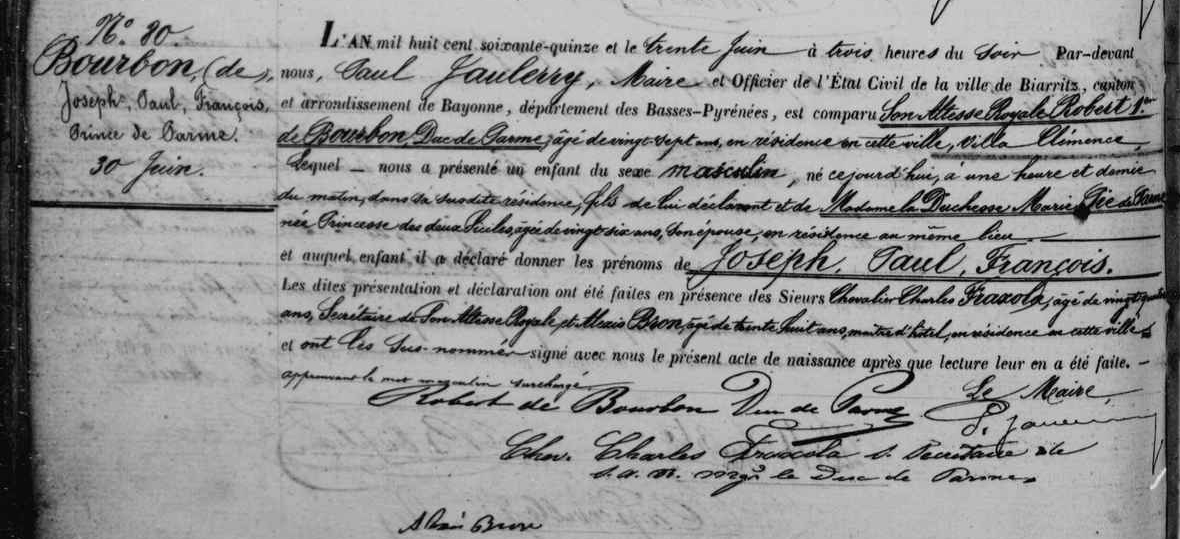 N° 80.
Bourbon, (de),
Joseph, Paul, François,
Prince de Parme.
30 Juin.
L'AN mil huit cent soixante-quinze et le trente Juin à trois heures du soir Par-devant
nous, Paul Jaulerry, Maire et Officier de l'État Civil de la ville de Biarritz, canton
et arrondissement de Bayonne, département des Basses-Pyrénées, est comparu Son Altesse Royale Robert 1er
de Bourbon, Duc de Parme, âgé de vingt sept ans, en résidence en cette ville, villa Clémence,
Lequel nous a présenté un enfant du sexe masculin, né cejourd'hui, à une heure et demie
du matin, dans sa susdite résidence, fils de lui déclarant et de Madame la Duchesse Marie Pie de Parme
née Princesse des deux Siciles, âgée de vingt six ans, son épouse, en résidence au même lieu
et auquel enfant il a déclaré donner les prénoms de Joseph, Paul, François.
Les dites présentation et déclaration ont été faites en présence des Sieurs Chevalier Charles Fraxola, âgé de vingt quatre
ans, Secrétaire de Son Altesse Royale, et Alexis Bron, âgé de trente huit ans, maître d'hôtel, en résidence en cette ville
et ont les sus-nommés signé avec nous le présent acte de naissance après que lecture leur en a été faite. -
approuvant le mot masculin surchargé.
Robert de Bourbon Duc de Parme Le Maire,
Chev. Charles Fraxola s. Secrétaire de P. Jaulerry
S. A. R. Mgr le Duc de Parme
Alexis Bron